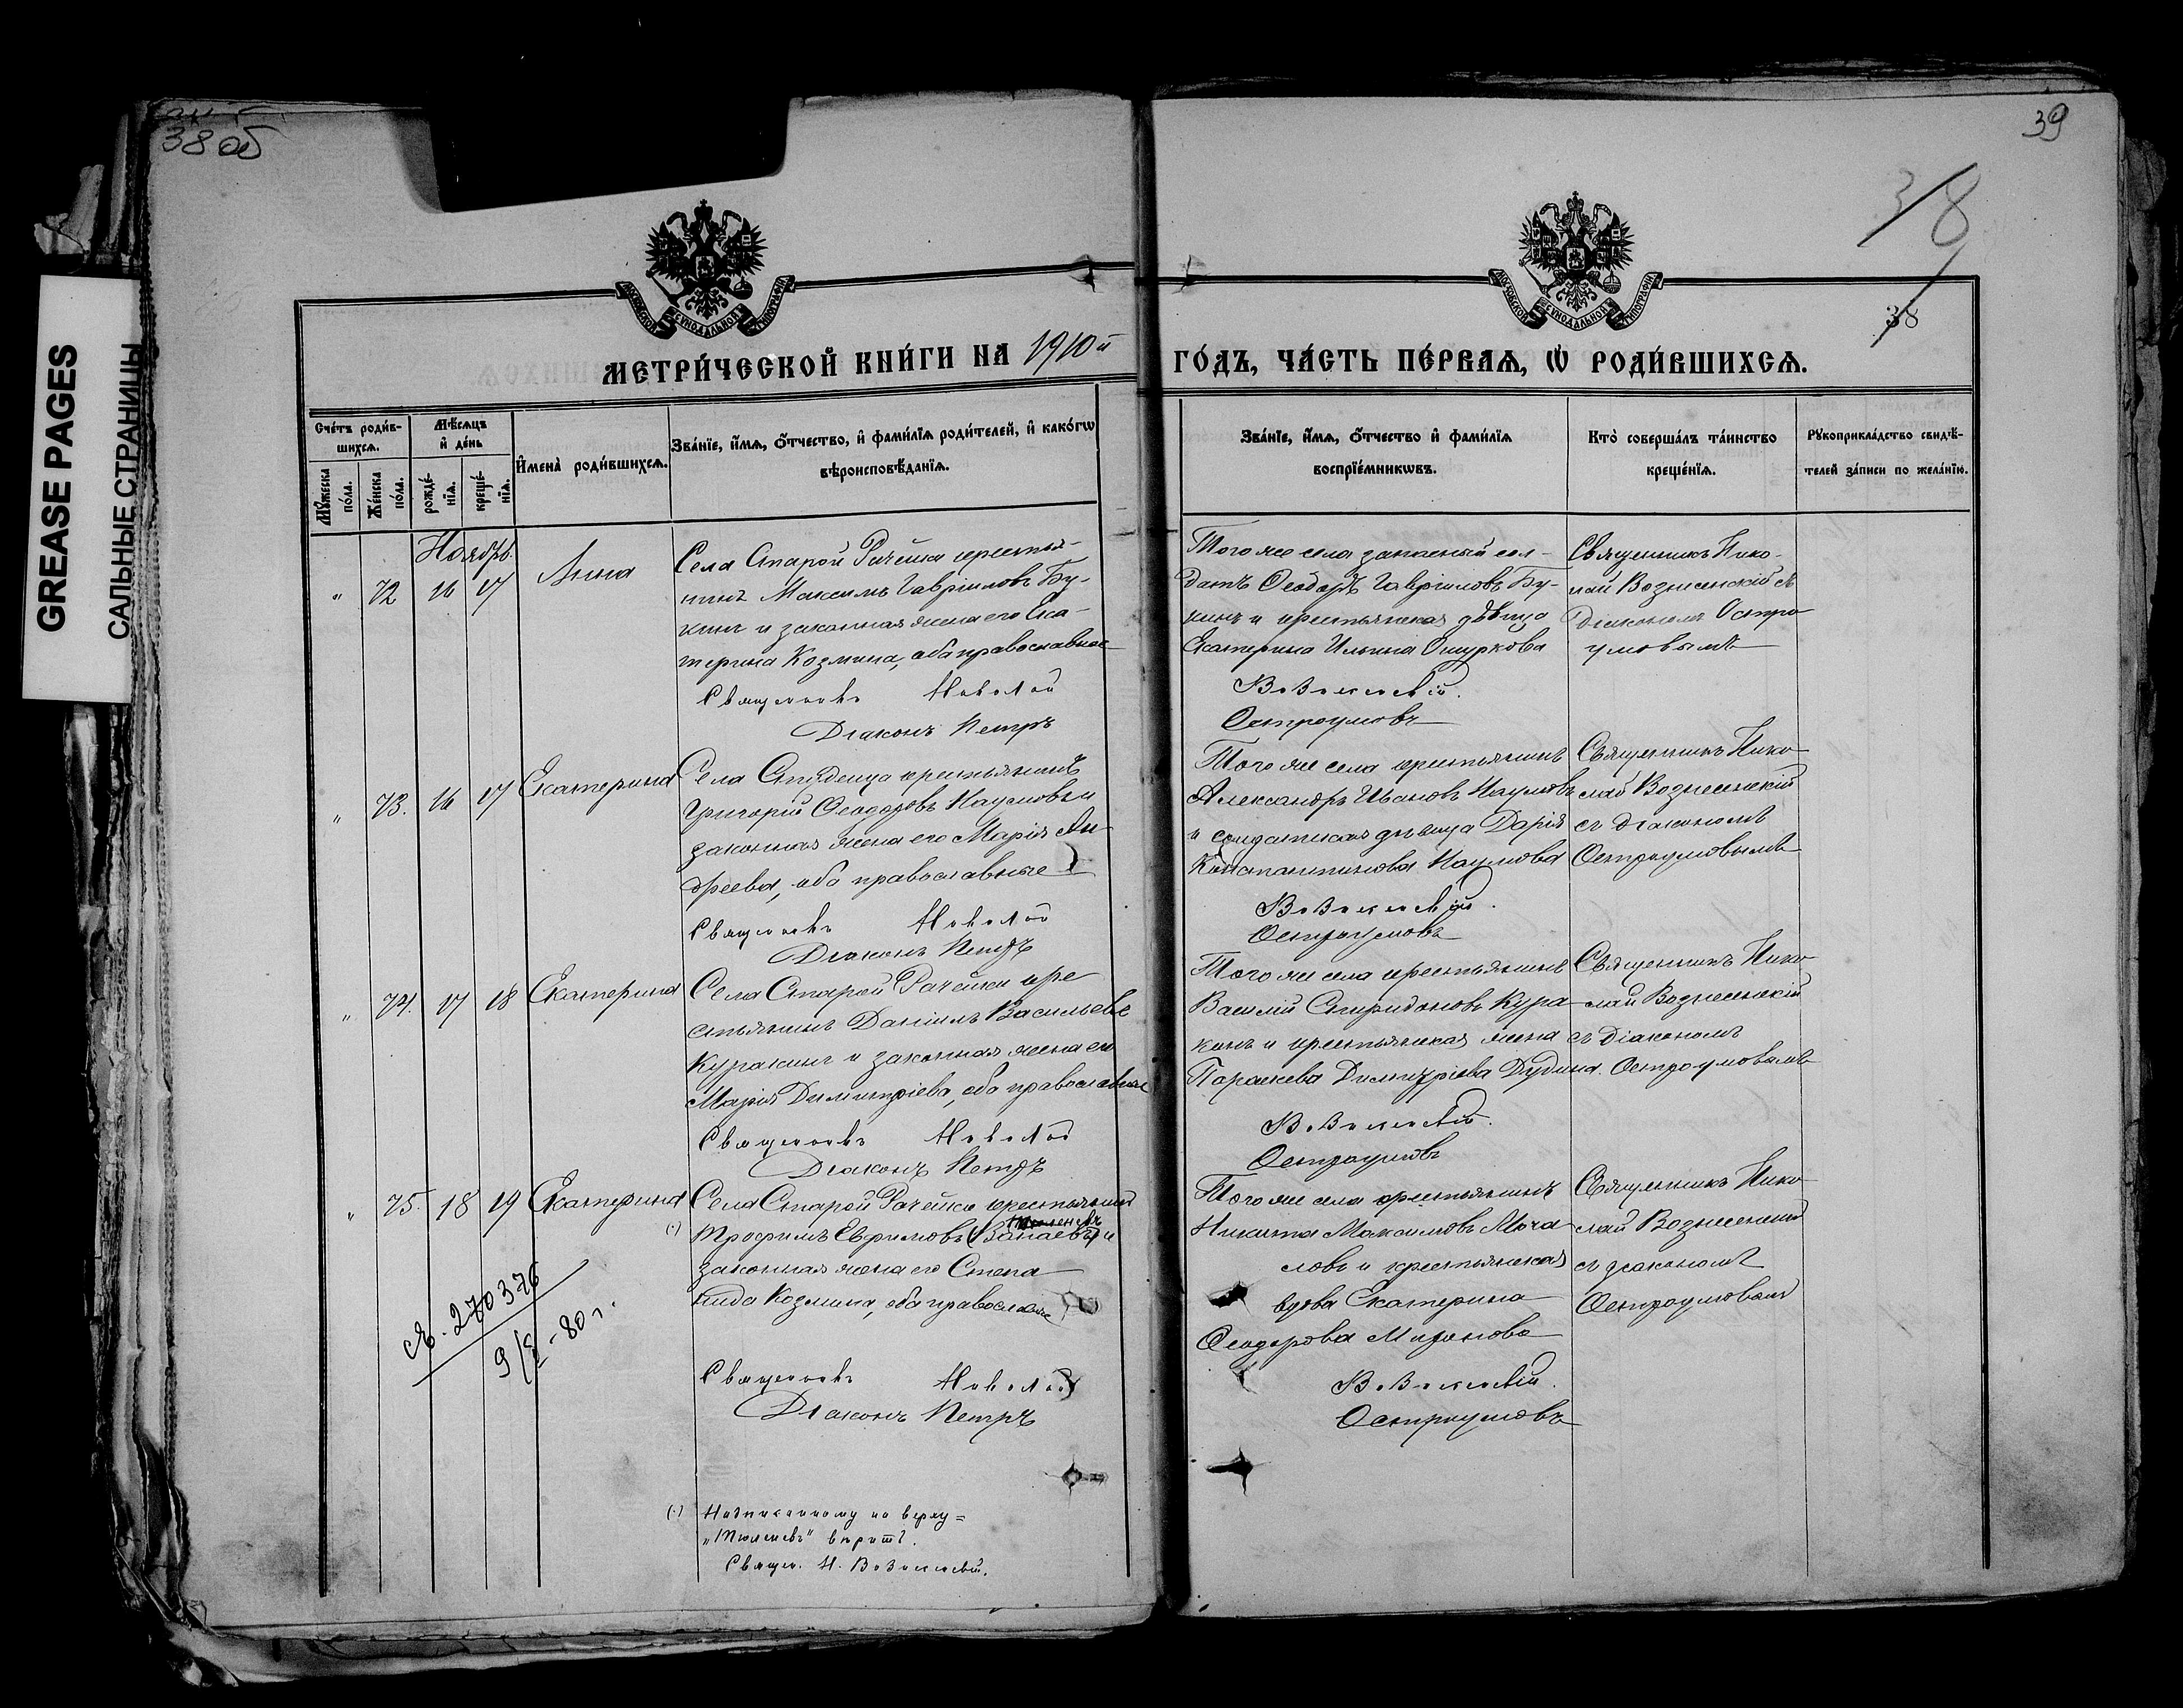 38 об
39
38
38
GREASE PAGES
САЛЬНЫЕ СТРАНИЦЫ
МОСКОВСКОЙ СѴНОДАЛЬНОЙ ТИПОГРАФІИ
МОСКОВСКОЙ СѴНОДАЛЬНОЙ ТИПОГРАФІИ
МЕТРИ́ЧЕСКОЙ КНИ́ГИ НА 1910й
ГО́ДЪ, ЧА́СТЬ ПЕ́РВАЯ, Ѡ РОДИ́ВШИХСЯ.
Сче́тъ роди́в-
шихся.
Мѣ́сяцъ
и де́нь
Мꙋ́жеска по́ла.
Же́нска по́ла.
рожде́-
нїя.
креще́-
нїя.
Имена̀ роди́вшихся.
Зва́нїе, и́мя, ѻ́тчество, и фами́лїя роди́телей, и како́гѡ
вѣроисповѣ́данїя.
Зва́нїе, и́мя, ѻ́тчество и фами́лїя
воспрїе́мникѡвъ.
Кто̀ соверша́лъ та́инство
креще́нїя.
Рꙋкоприкла́дство свидѣ́-
телей за́писи по жела́нїю.
Ноябрь
" 72 16 17 Анна
Села Старой Рачейки крестья-
нинъ Максимъ Гавріиловъ Бу-
кинъ и законная жена его Ека-
терина Козмина, оба православные
Священникъ Николай
Діаконъ Петръ
Того же села запасный сол-
датъ Ѳеодоръ Гавріиловъ Бу-
кинъ и крестьянская дѣвица
Екатерина Ильина Ошуркова
Вознесенскій.
Остроумовъ
Священникъ Нико-
лай Вознесенскій съ
Діакономъ Остро
умовымъ
" 73. 16 17 Екатерина
Села Студенца крестьянинъ
Григорій Ѳеодоровъ Наумовъ и
законная жена его Марія Ан-
дреева, оба православные
Священникъ Николай
Діаконъ Петръ
Того же села крестьянинъ
Александръ Ивановъ Наумовъ
и солдатская дѣвица Дарія
Константинова Наумова
Вознесенскій.
Остроумовъ
Священникъ Нико-
лай Вознесенскій
съ діакономъ
Остроумовымъ
" 74. 17 18 Екатерина
Села Старой Рачейки кре
стьянинъ Даніилъ Васильевъ
Куракинъ и законная жена его
Марія Димитріева, оба православные
Священникъ Николай
Діаконъ Петръ
Того же села крестьянинъ
Василій Спиридоновъ Кура
кинъ и крестьянская жена
Параскева Димитріева Дудина.
Вознесенскій.
Остроумовъ
Священникъ Нико-
лай Вознесенскій
съ Діакономъ
Остроумовымъ
" 75. 18 19 Екатерина
Села Старой Рачейки крестьянинъ
Тюленевъ
(·) Трофимъ Ефимовъ (Ванаевъ) и
законная жена его Степа
нида Козмина, оба православные
Священникъ Николай
Діаконъ Петръ
Того же села крестьянинъ
Никита Максимовъ Моча
ловъ и крестьянская
вдова Екатерина
Ѳеодорова Миронова
Вознесенскій.
Остроумовъ
Священникъ Нико-
лай Вознесенскій
съ діакономъ
Остроумовымъ
270376
80 г.
(·) Надписанному на верху =
„Тюленевъ" вѣрить.
Свящ. Н. Вознесенскій.